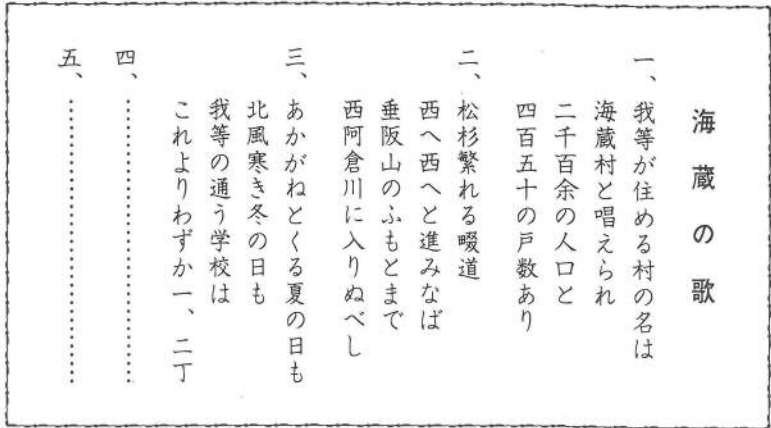 海蔵の歌
一、我等が住める村の名は
海蔵村と唱えられ
二千百余の人口と
四百五十の戸数あり
二、松杉繁れる畷道
西へ西へと進みなば
垂阪山のふもとまで
西阿倉川に入りぬべし
三、あかがねとくる夏の日も
北風寒き冬の日も
我等の通う学校は
これよりわずか一、二丁
四、……………………………
五、……………………………